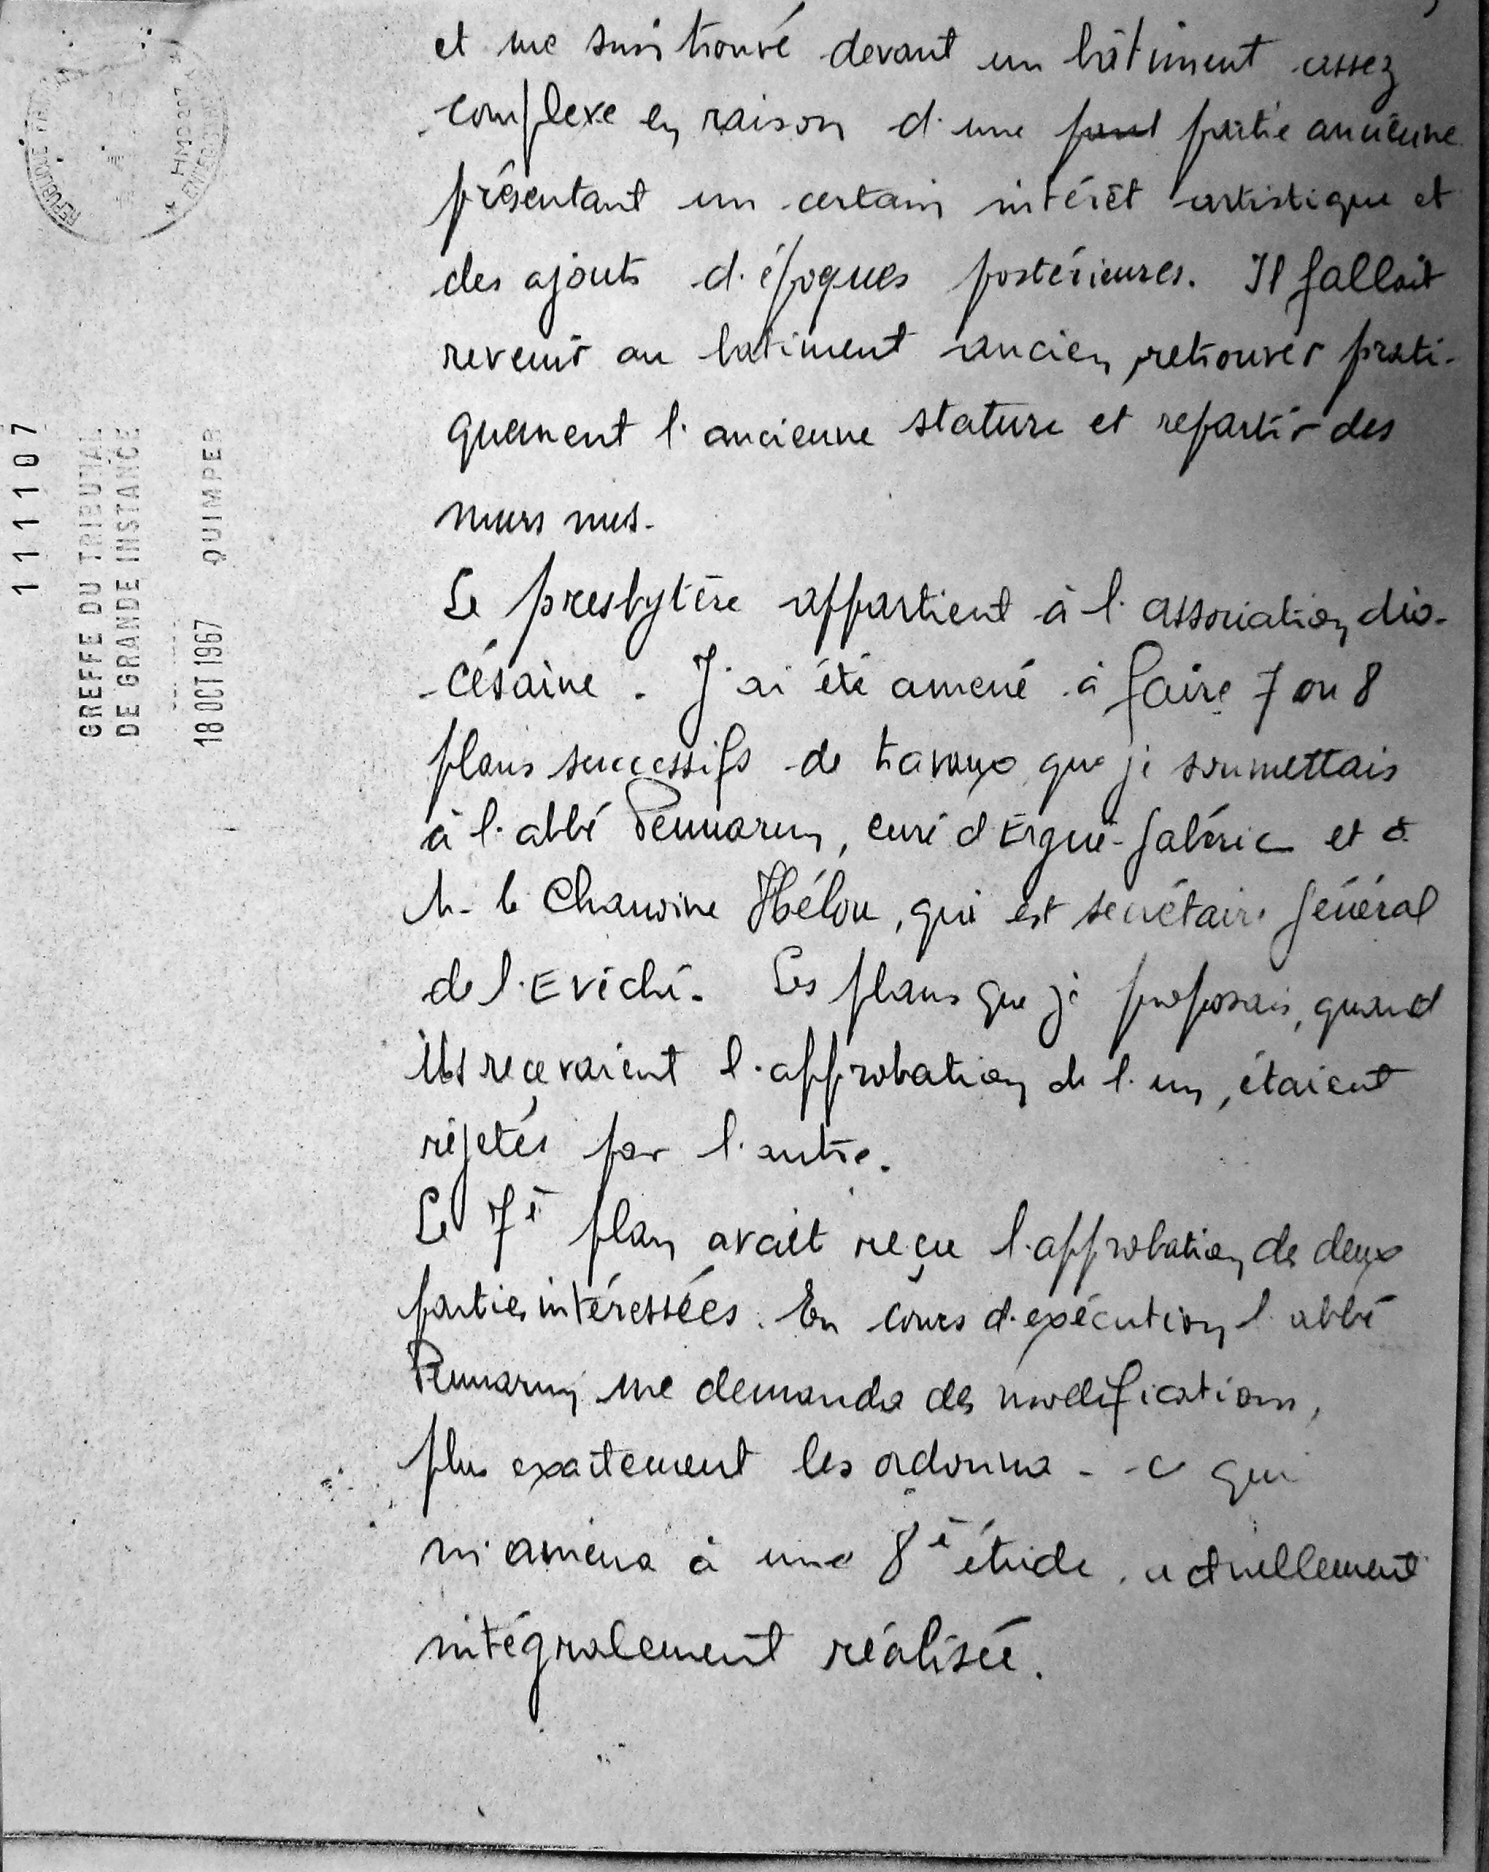 et me suis trouvé devant un bâtiment assez
complexe en raison d'une part partie ancienne
présentant un certain intérêt artistique et
des ajouts d'époques postérieures. Il fallait
revenir au batiment ancien, retrouver prati-
quement l'ancienne stature et repartir des
murs nus.
Le presbytère appartient à l'association dio-
césaine. J'ai été amené à faire 7 ou 8
plans successifs de travaux que je soumettais
à l'abbé Pennarun, curé d'Ergué-Gabéric et à
M. le Chanoine Hélou, qui est secrétaire général
de l'Evêché. Les plans que je proposais, quand
ils reçevaient l'approbation de l'un, étaient
rejetés par l'autre.
Le 7è plan avait reçu l'approbation de deux
parties intéressées. En cours d'exécution l'abbé
Pennarun me demanda des modifications,
plus exactement les ordonna - ce qui
m'amena à une 8è étude, actuellement
intégralement réalisée.
111107
GREFFE DU TRIBUNAL
DE GRANDE INSTANCE
18 OCT 1967 QUIMPER